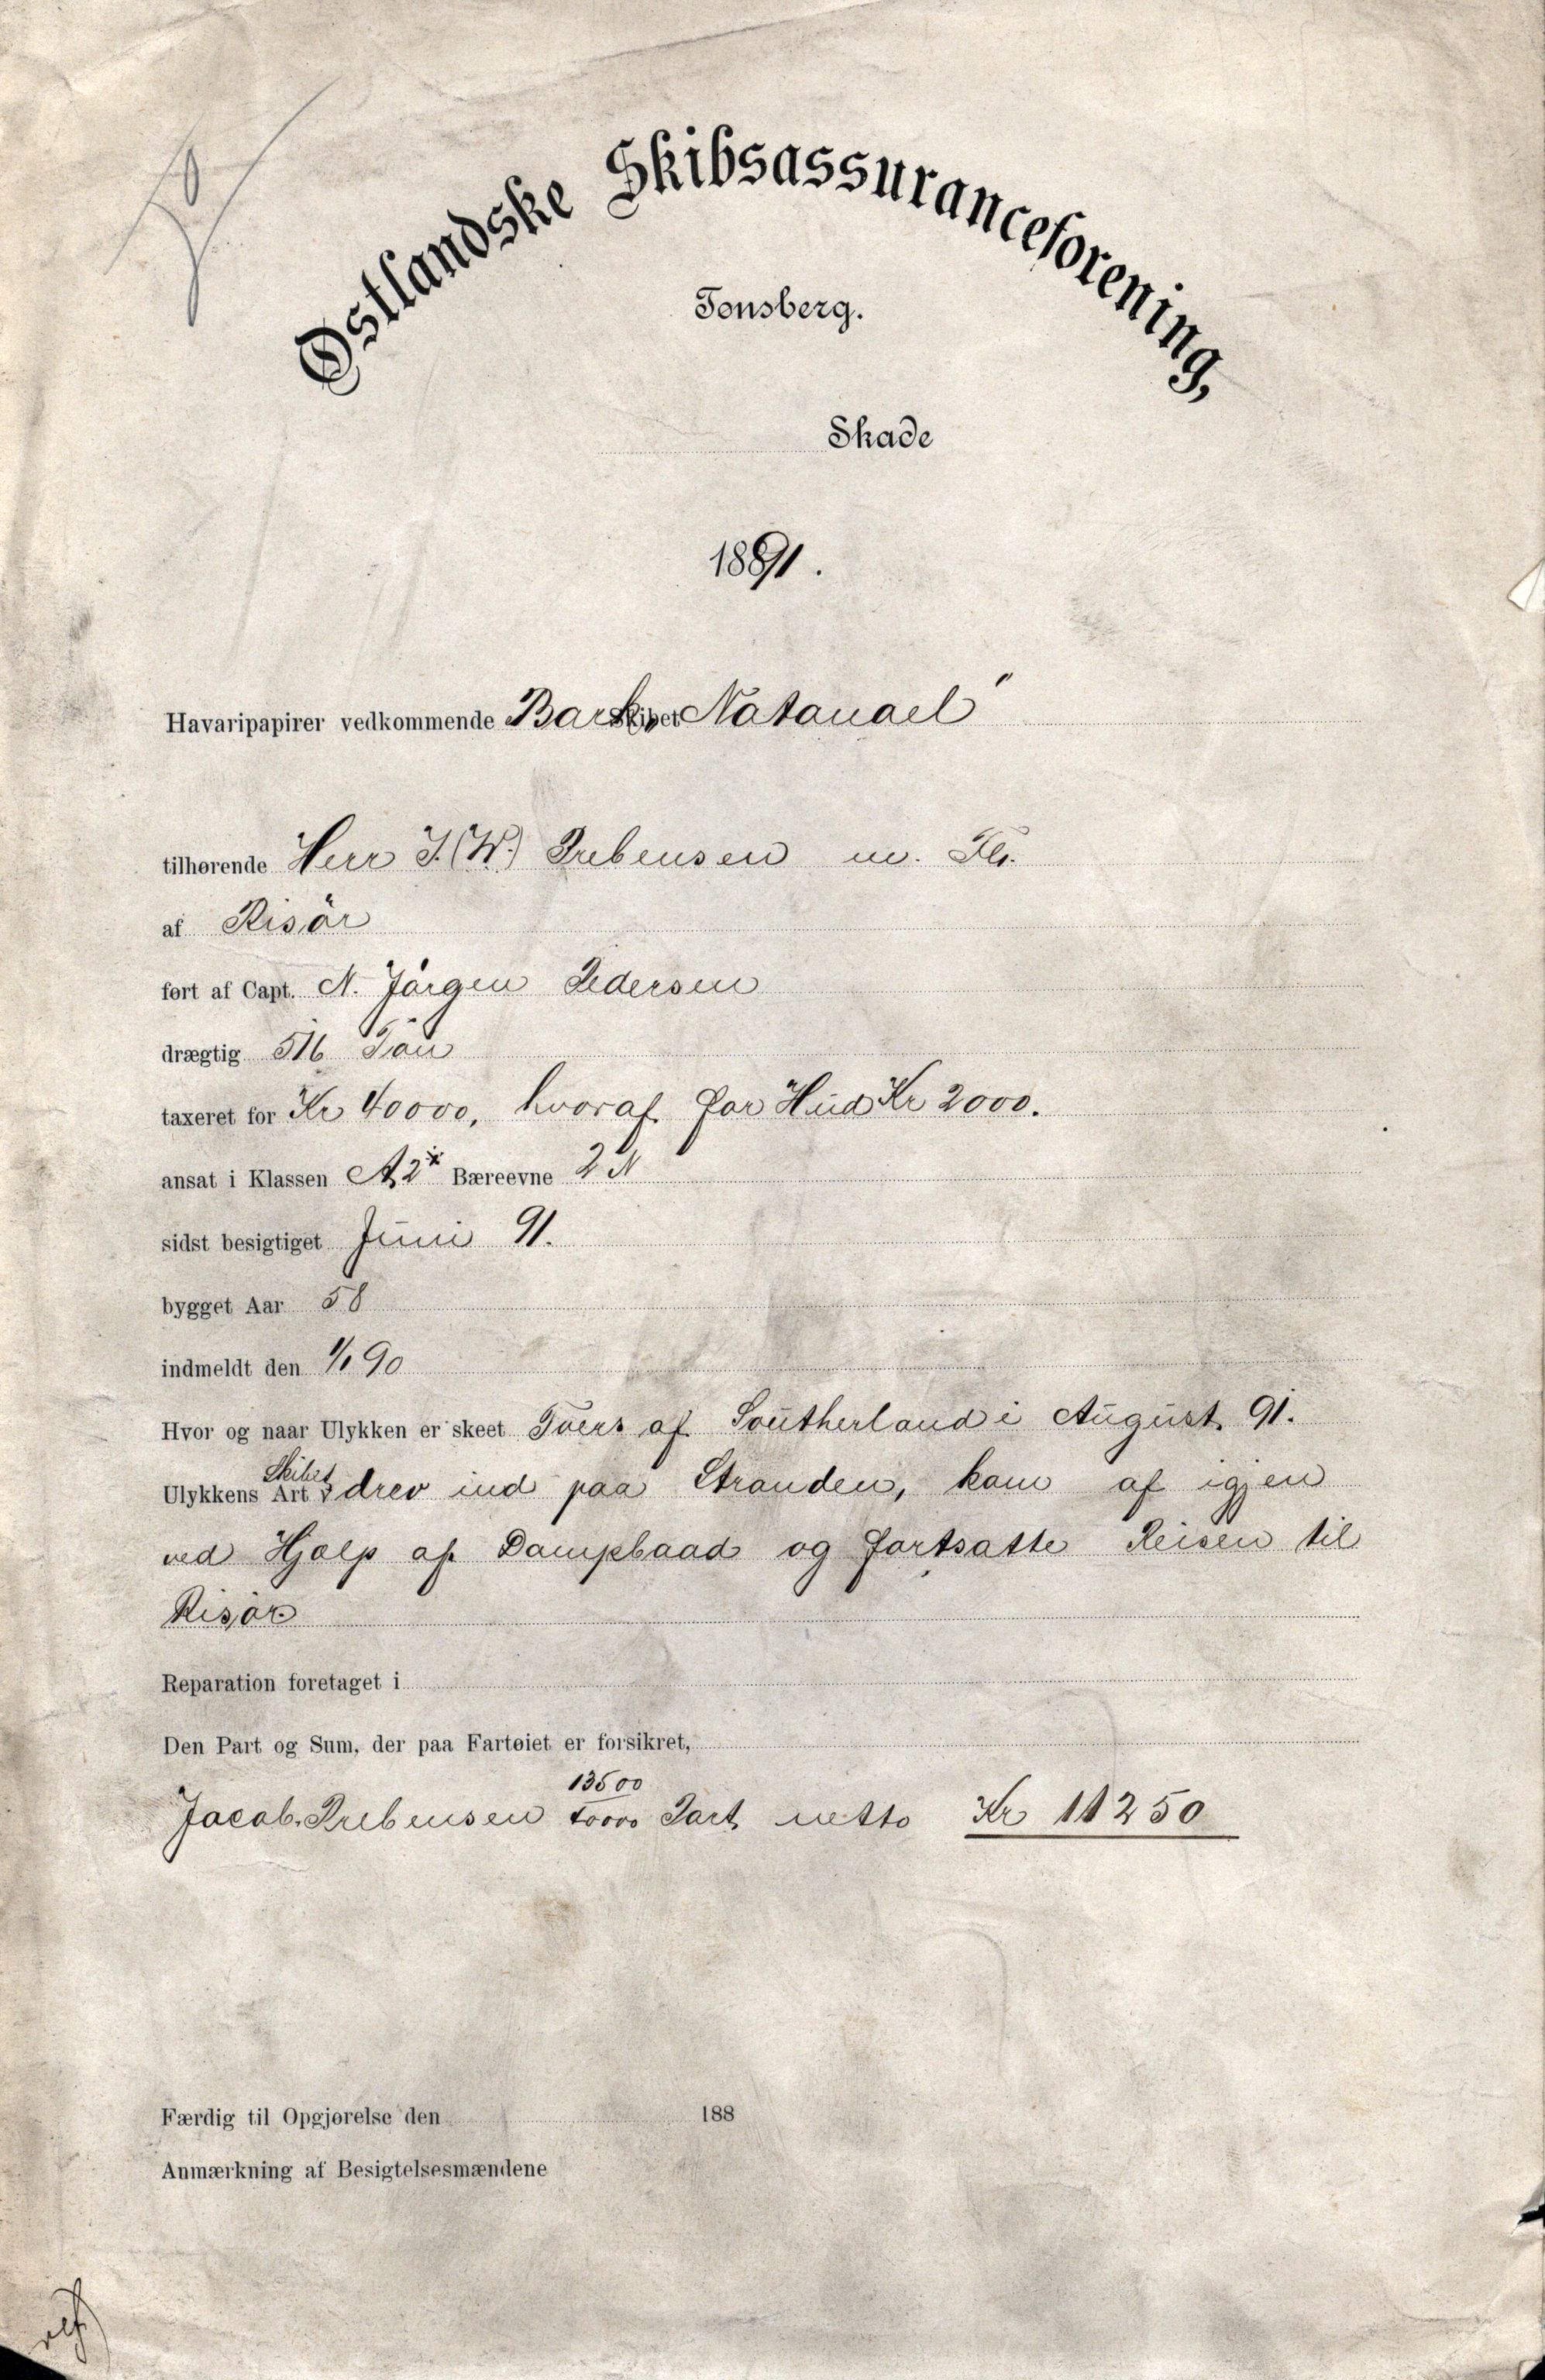 Østlandske Skibsassuranceforening,
Tønsberg.
Skade
1891.
Havaripapirer vedkommende Bark „Natanael"
tilhørende Herr J. (W.) Prebensen m. Fl.
af Risör
ført af Capt. N. Jörgen Pedersen
drægtig 516 Ton
taxeret for Kr 40000, hvoraf for Hud Kr 2000.
ansat i Klassen A2* Bæreevne 2 N
sidst besigtiget Juni 91.
bygget Aar 58
indmeldt den 1/1 90
Hvor og naar Ulykken er skeet Tvers af Southerland i August 91.
Ulykkens Art Skibet drev ind paa Stranden, kom af igjen
ved Hjælp af Dampbaad og fortsatte Reisen til
Risör
Reparation foretaget i
Den Part og Sum, der paa Fartøiet er forsikret,
Jacob Prebensen 13500/40000 Part netto Kr 11250
Færdig til Opgjørelse den 188
Anmærkning af Besigtelsesmændene